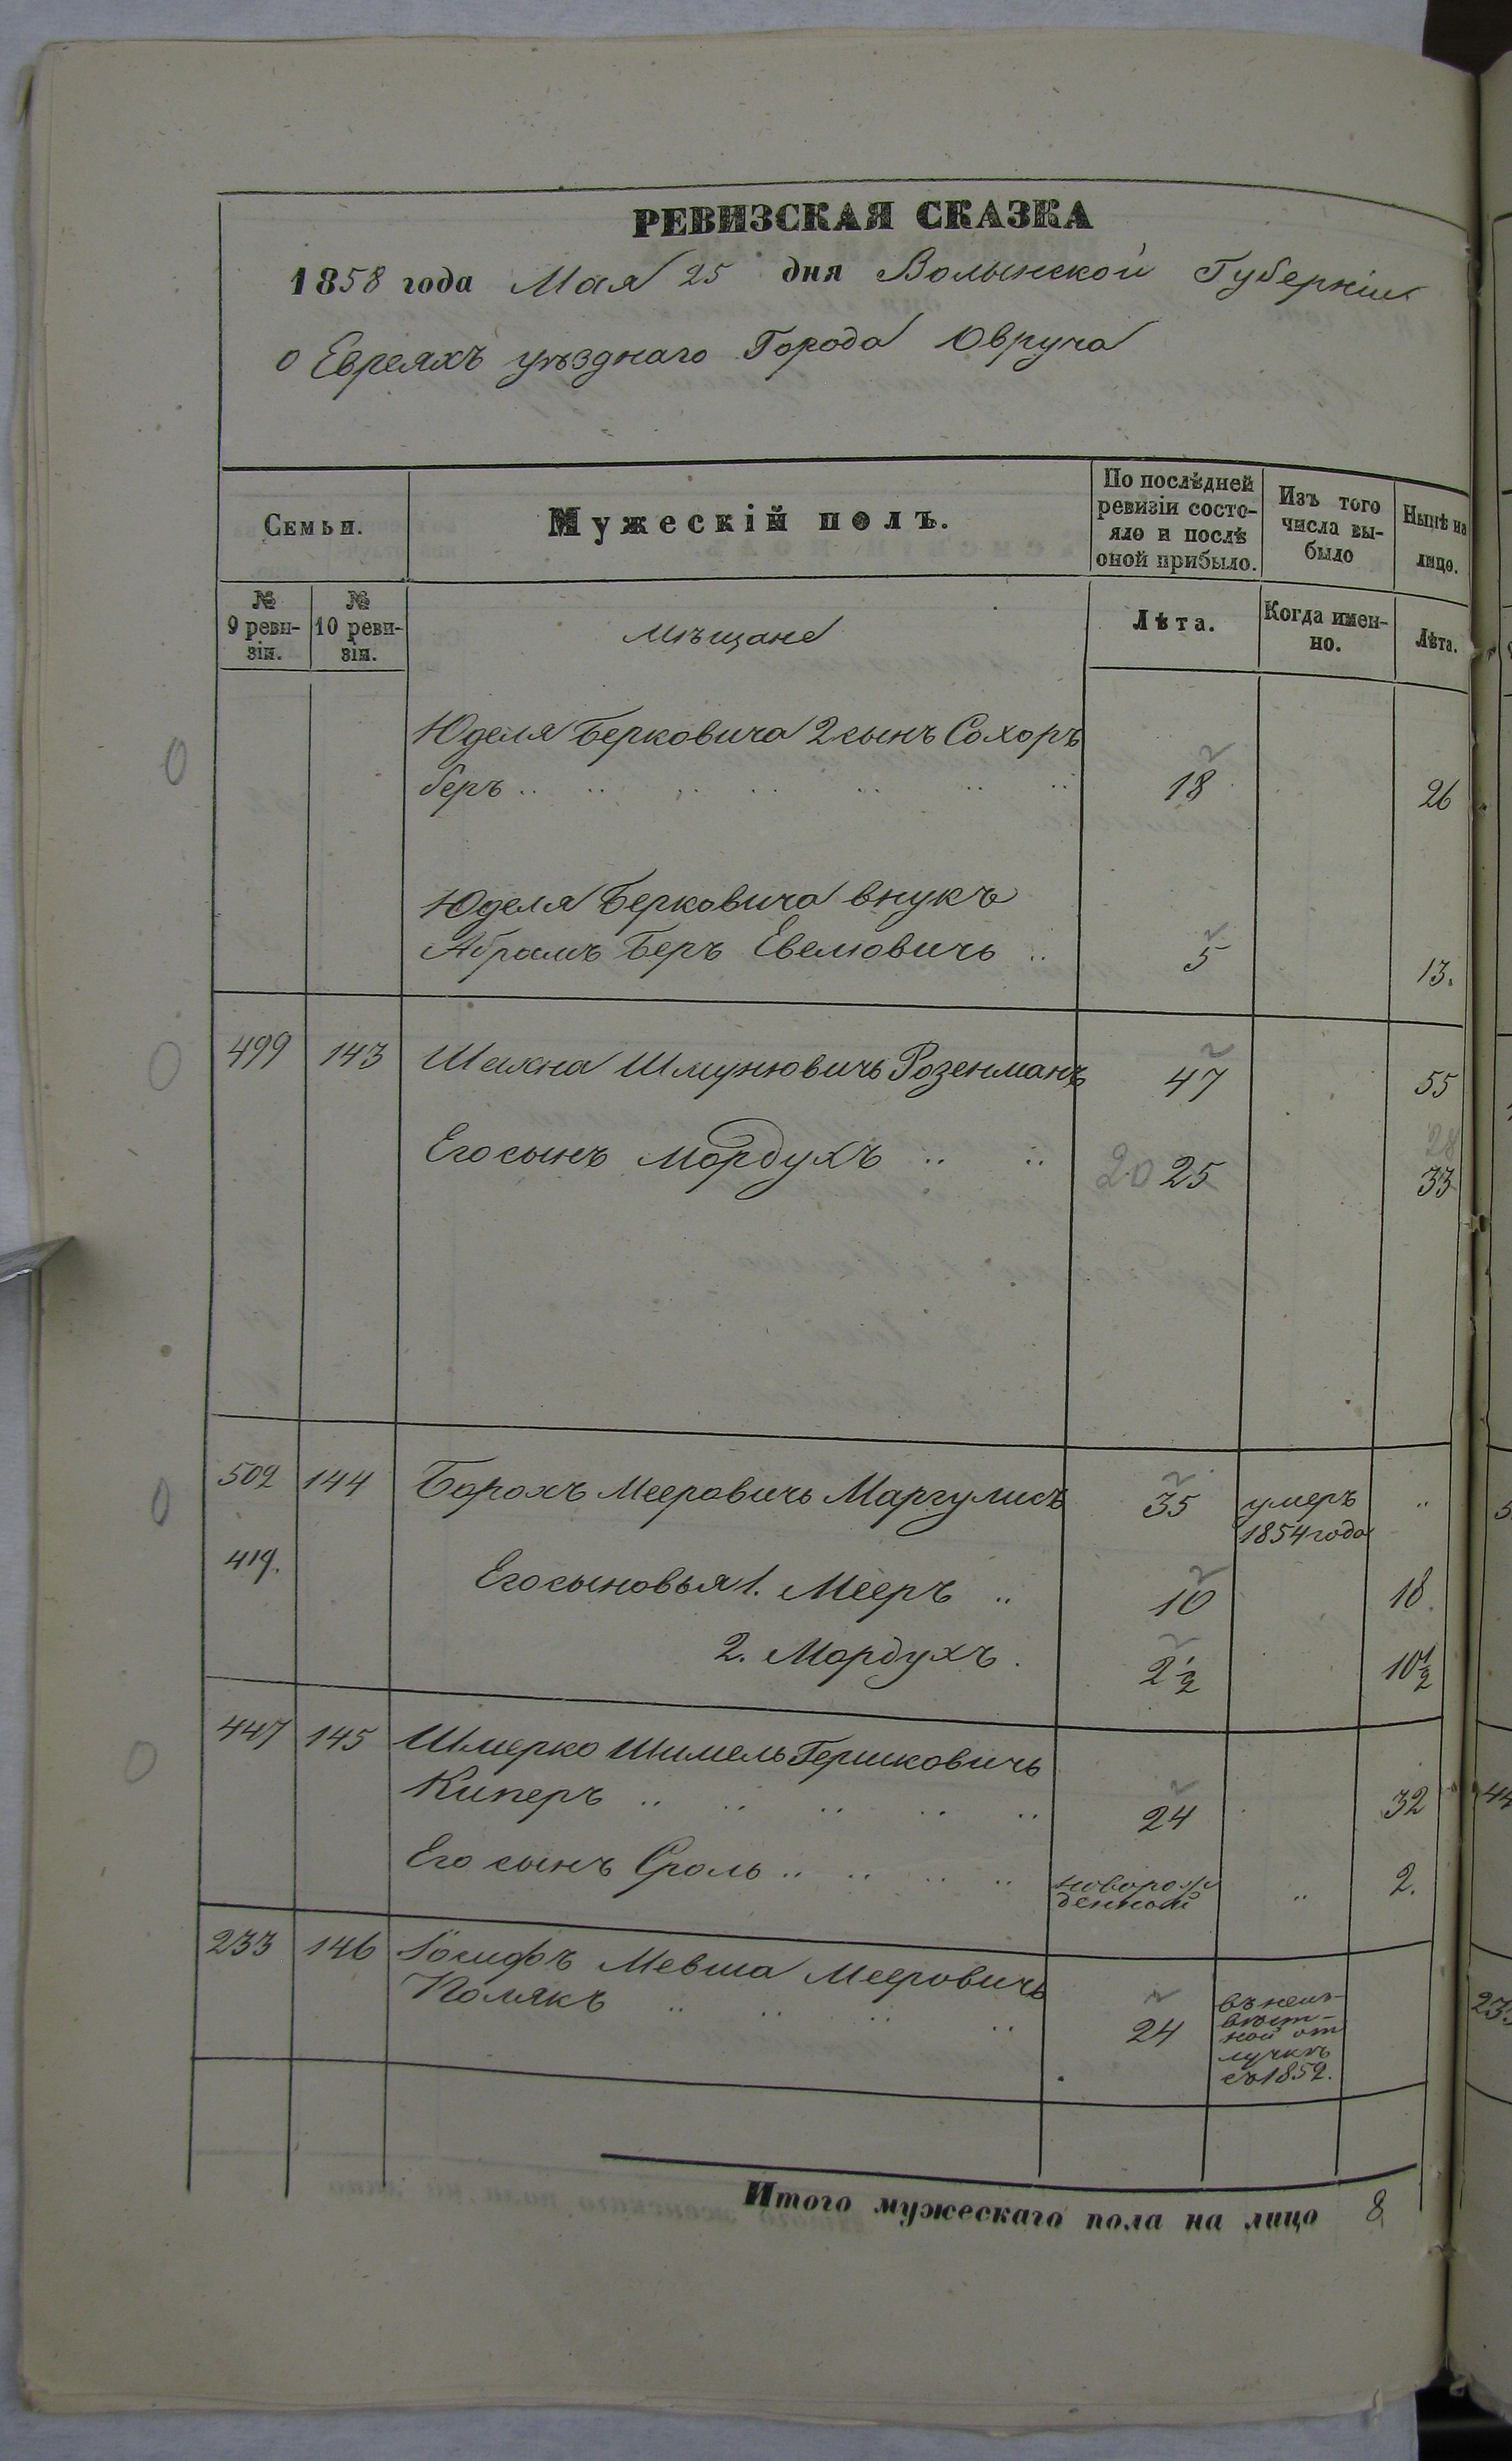 РЕВИЗСКАЯ СКАЗКА
1858 года Мая 25 дня Волынской Губерніи
о Евреяхъ уѣзднаго Города Овруча
Семьи.
Мужескій полъ.
По послѣдней
ревизіи состо-
яло и послѣ
оной прибыло.
Изъ того
числа вы-
было
Нынѣ на
лицо.
№
9 реви-
зіи.
№
10 реви-
зіи.
Мѣщане
Лѣта.
Когда имен-
но.
Лѣта.
Юделя Берковича 2 сынъ Сохоръ
беръ .. 18 26
Юделя Берковича внукъ
Абрамъ Беръ Евелювичь .. 5 13.
499 143 Шахна Шмунювичь Розенманъ 47 55
28
Его сынъ Мордухъ .. .. 20 25 33
502 144 Борохъ Мееровичь Маргулисъ 35 умеръ ..
1854 года
419. Его сыновья 1. Мееръ .. 10 18.
2. Мордухъ. 2 1/2 10 1/2
447 145 Шмерко Шимель Гершковичь
Киперъ .. .. .. .. .. 24 32
Его сынъ Сроль .. .. .. .. новорож
денный .. 2.
233 146 Іосифъ Мевша Мееровичь
Полякъ .. .. .. .. 24 въ неиз-
вѣст-
ной от
лучкѣ
съ 1852.
Итого мужескаго пола на лицо 8